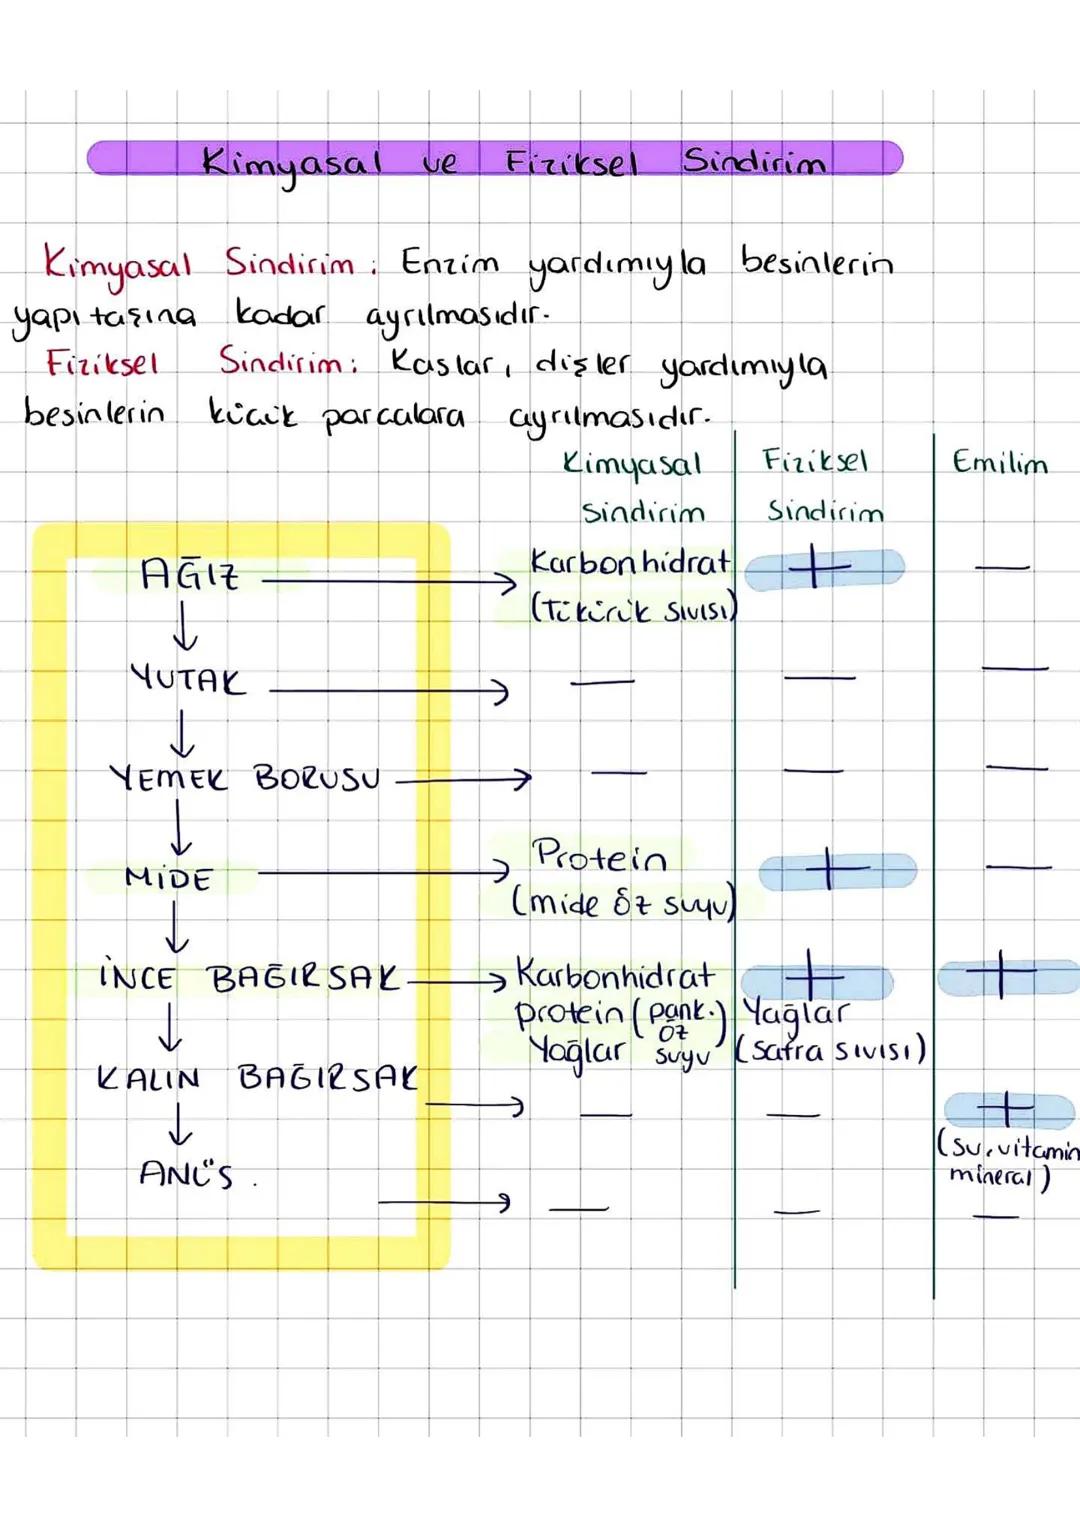 Kimyasal ve Fiziksel Sindirim
Kimyasal Sindirim : Enzim yardımıyla besinlerin
yapı taşına kadar ayrılmasıdır.
Fiziksel Sindirim: Kaslar, dişler yardımıyla
besinlerin küçük parçalara ayrılmasıdır.
Kimyasal Fiziksel Emilim
Sindirim Sindirim
AĞIZ → Karbonhidrat + —
(Tükürük sıvısı)
↓
YUTAK → — — —
↓
YEMEK BORUSU → — — —
↓
MİDE → Protein + —
(mide öz suyu)
↓
İNCE BAĞIRSAK → Karbonhidrat + +
protein (pank. Yağlar
Yağlar öz suyu) (Safra sıvısı)
↓
KALIN BAĞIRSAK → — — +
(su, vitamin
mineral)
↓
ANÜS. → — — —